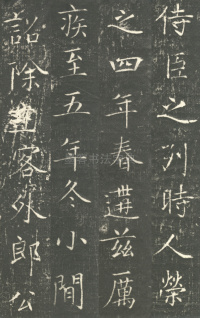 侍臣之列時人榮
之四年春遘茲厲
疾至五年冬小間
詔除員客外郎公